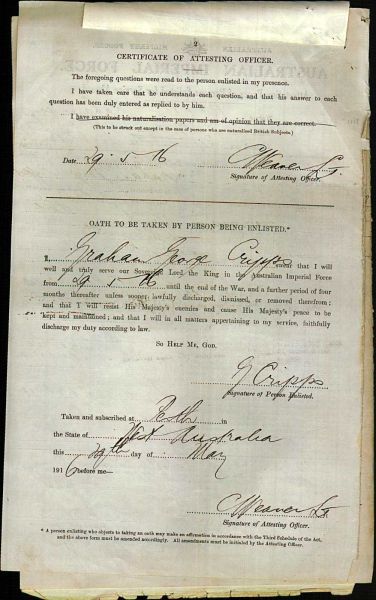 2
CERTIFICATE OF ATTESTING OFFICER.
The foregoing questions were read to the person enlisted in my presence.
I have taken care that he understands each question, and that his answer to each
question has been duly entered as replied to by him.
I have examined his naturalisation papers and am of opinion that they are correct.
(This to be struck out except in the case of persons who are naturalised British Subjects.)
Date 29. 5. 16 C Weaver Lt.
Signature of Attesting Officer.
OATH TO BE TAKEN BY PERSON BEING ENLISTED.*
I, Graham Cripps swear that I will
well and truly serve our Sovereign Lord the King in the Australian Imperial Force
from 29 5 16 until the end of the War, and a further period of four
months thereafter unless sooner lawfully discharged, dismissed, or removed therefrom;
and that I will resist His Majesty's enemies and cause His Majesty's peace to be
kept and maintained; and that I will in all matters appertaining to my service, faithfully
discharge my duty according to law.
SO HELP ME, GOD.
G Cripps
Signature of Person Enlisted.
Taken and subscribed at Perth in
the State of West Australia
this 29th day of May
1916 before me—
C Weaver Lt
Signature of Attesting Officer.
* A person enlisting who objects to taking an oath may make an affirmation in accordance with the Third Schedule of the Act,
and the above form must be amended accordingly. All amendments must be initialed by the Attesting Officer.